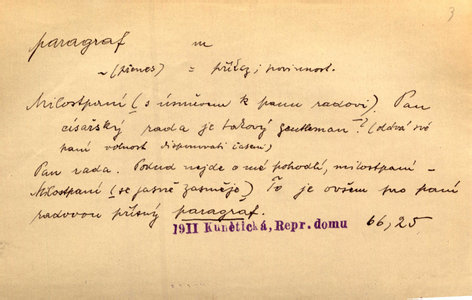 3
paragraf m
~ (přenes) = příkaz; povinnost.
Milostpaní (s úsměvem k panu radovi). Pan
císařský rada je takový gentleman? (dává své
paní volnost disponovati časem)
Pan rada. Pokud nejde o mé pohodlí, milostpaní –
Milostpaní (se jasně zasměje) To je ovšem pro paní
radovou přísný paragraf.
1911 Kunětická, Repr. domu 66, 25